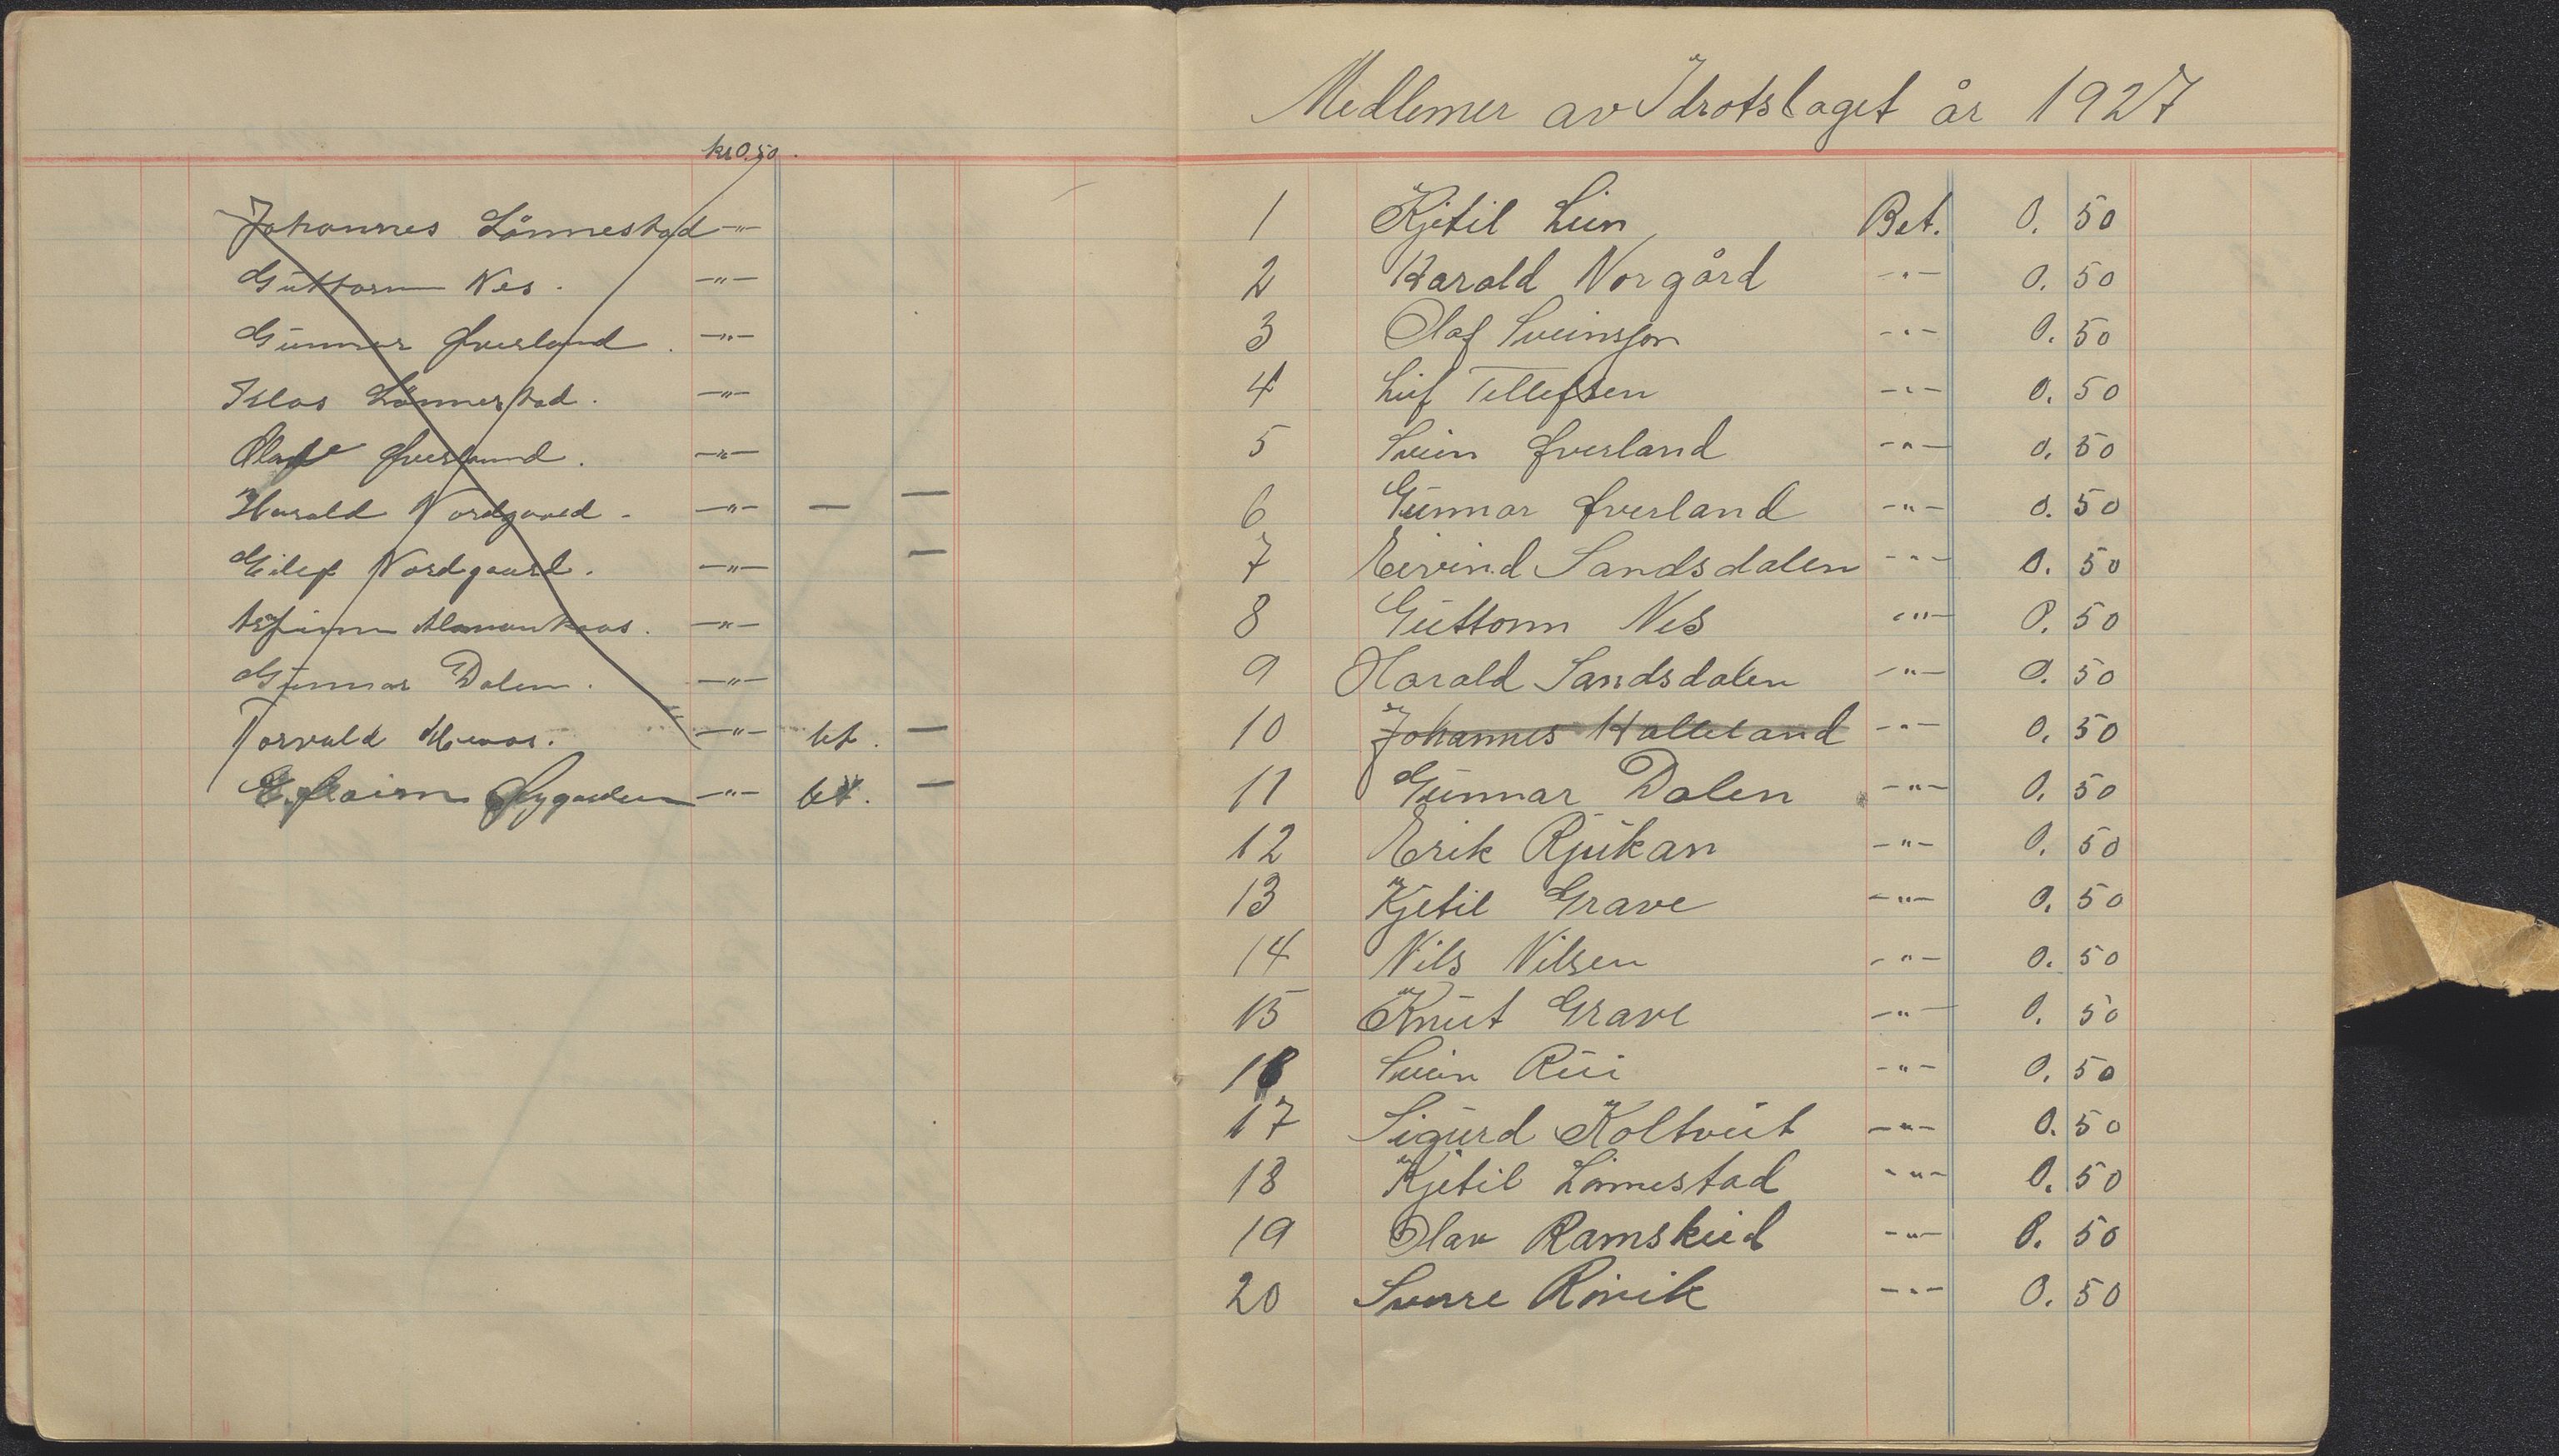 kr 0.50.
Johannes Lönnestad -"-
Guttorm Nes. -"-
Gunnar Øverland. -"-
Lönnestad. -"-
Olav Øverland. -"-
Harald Nordgaard. -"- — —
Eilef Nordgaard. -"- —
-"-
Gunnar Dalen. -"-
Torvald -"- bet. —
-"- bet. —
Medlemer av Idrotslaget år 1927
1 Kjetil Lien Bet. 0.50
2 Harald Norgård -"- 0.50
3 Olaf Sveinsson -"- 0.50
4 Leif Tellefsen -"- 0.50
5 Svein Øverland -"- 0.50
6 Gunnar Øverland -"- 0.50
7 Eivind Sandsdalen -"- 0.50
8 Guttorm Nes -"- 0.50
9 Harald Sandsdalen -"- 0.50
10 Johannes Halleland -"- 0.50
11 Gunnar Dalen -"- 0.50
12 Erik Rjukan -"- 0.50
13 Kjetil Grave -"- 0.50
14 Nils Nilsen -"- 0.50
15 Knut Grave -"- 0.50
16 Svein Rui -"- 0.50
17 Sigurd Koltveit -"- 0.50
18 Kjetil Lönnestad -"- 0.50
19 Olav Ramskeid -"- 0.50
20 Sverre Rinik -"- 0.50